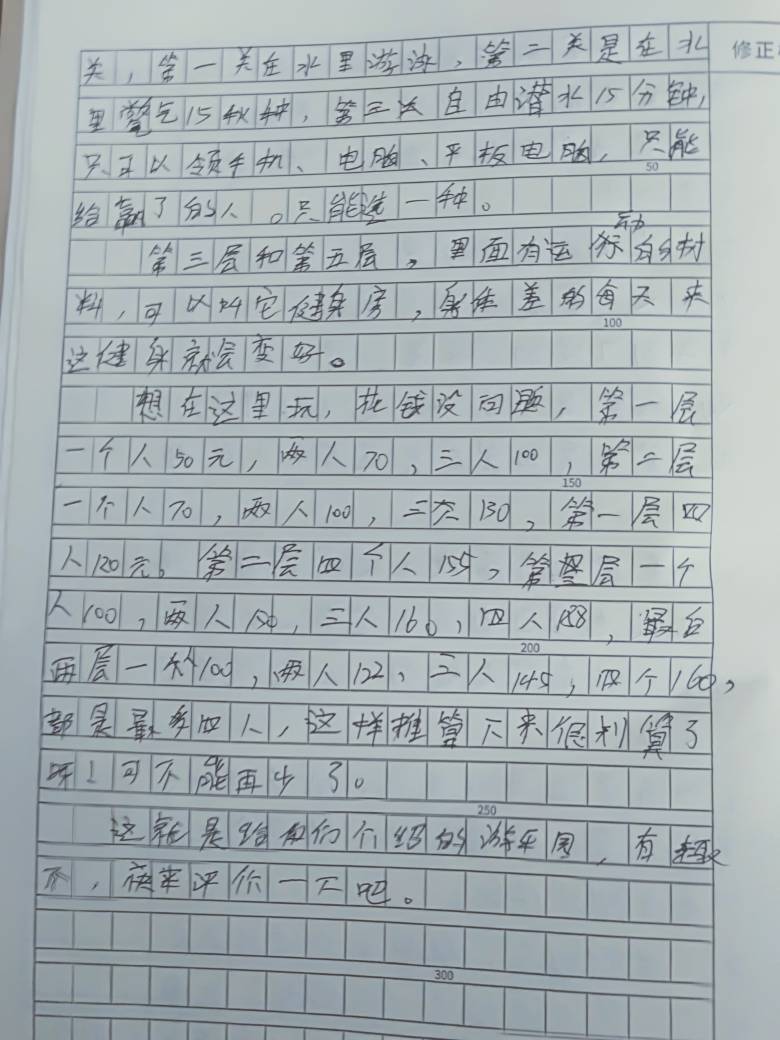 修正
关，第一关在水里游泳，第二关是在水
里憋气15秒钟，第三次自由潜水15分钟，
只可以领手机、电脑、平板电脑，只能
50
给赢了的人。只能选一种。
第三层和第五层，里面有运动的材
料，可以叫它健身房，身体差的每天来
100
这健身就会变好。
想在这里玩，花钱没问题，第一层
一个人50元，两人70，三人100，第二层
150
一个人70，两人100，三人130，第一层四
人120元。第二层四个人155，第层一个
人100，两人150，三人160，四人188，最后
200
两层一个100，两人122、三人145，四个160，
都是最多四人，这样推算下来很划算了
呀！可不能再少了。
250
这就是给你们介绍的游乐园，有趣
不，快来评价一下吧。
300